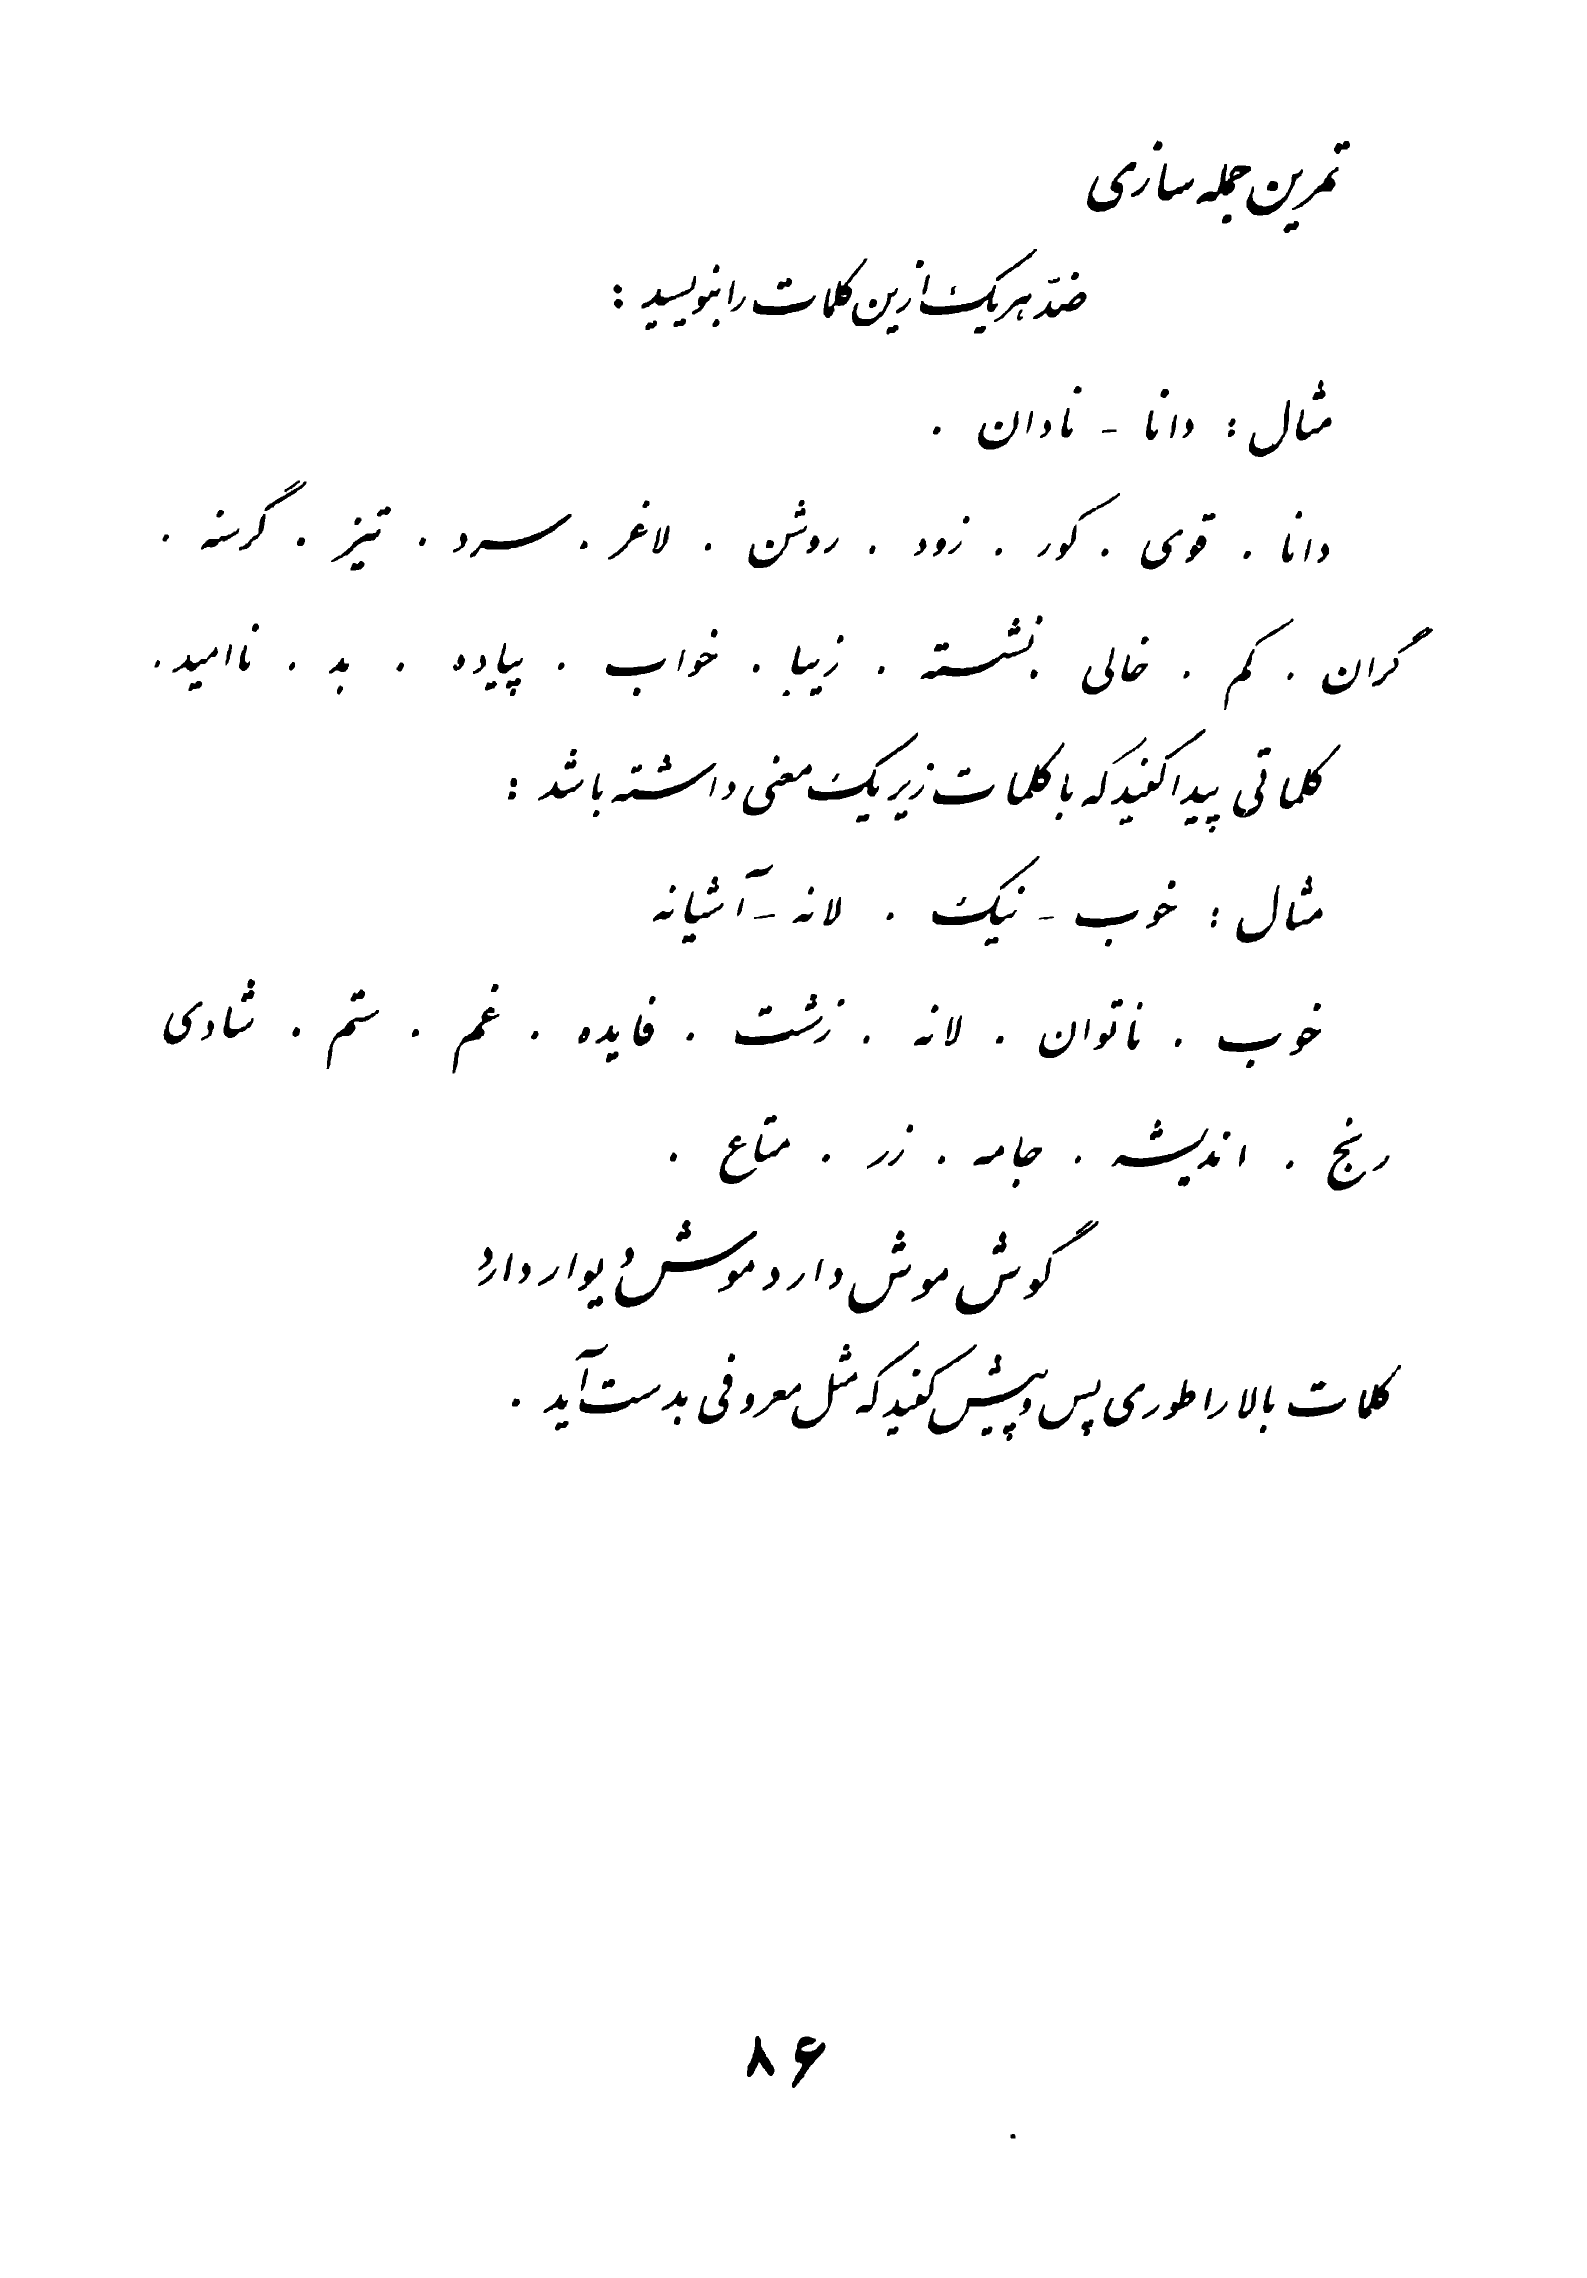 تمرین جمله سازی
ضدّ هر یک ازین کلمات را بنویسید :
مثال : دانا - نادان .
دانا . قوی . کور . زود . روشن . لاغر . سرد . تیز . گرسنه .
گران . کم . خالی . نشسته . زیبا . خواب . پیاده . بد . ناامید .
کلماتی پیدا کنید که با کلمات زیر یک معنی داشته باشد :
مثال : خوب - نیک . لانه - آشیانه
خوب . ناتوان . لانه . زشت . فایده . غم . ستم . شادی
رنج . اندیشه . جامه . زر . متاع .
گوش موش دارد موش دیوار دارد
کلمات بالا را طوری پس و پیش کنید که مثل معروفی بدست آید .
۸۶